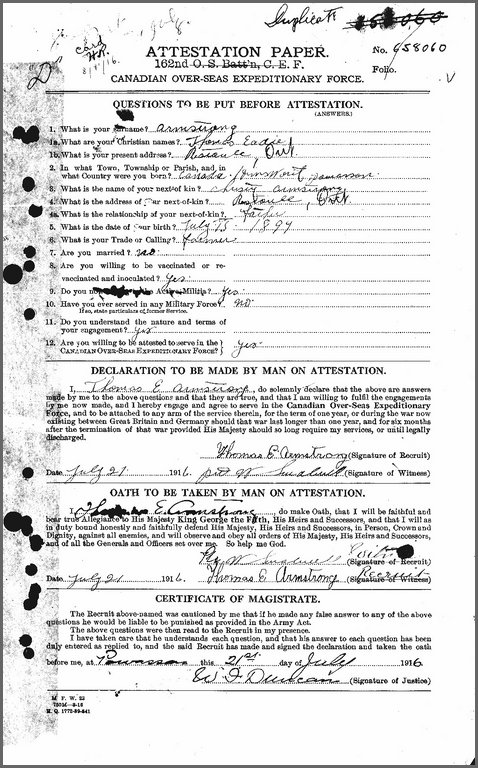 Duplicate
July
Card
8/11/16.
No. 658060
ATTESTATION PAPER.
162nd O. S. Batt'n, C. E. F.
Folio.
CANADIAN OVER-SEAS EXPEDITIONARY FORCE.
QUESTIONS TO BE PUT BEFORE ATTESTATION.
(ANSWERS.)
1. What is your surname? Armstrong
1a. What are your Christian names? Thomas Eadie
1b. What is your present address? Ont.
2. In what Town, Township or Parish, and in
what Country were you born? Canada
3. What is the name of your next-of-kin? Armstrong
4. What is the address of your next-of-kin? Ont
4a. What is the relationship of your next-of-kin? Father
5. What is the date of your birth? July 15 1897
6. What is your Trade or Calling? Farmer
7. Are you married? no
8. Are you willing to be vaccinated or re-
vaccinated and inoculated? Yes
9. Do you now belong to the Active Militia? Yes
10. Have you ever served in any Military Force? no
If so, state particulars of former Service.
11. Do you understand the nature and terms of
your engagement? Yes
12. Are you willing to be attested to serve in the
CANADIAN OVER-SEAS EXPEDITIONARY FORCE? yes
DECLARATION TO BE MADE BY MAN ON ATTESTATION.
I, Thomas E. Armstrong, do solemnly declare that the above are answers
made by me to the above questions and that they are true, and that I am willing to fulfil the engagements
by me now made, and I hereby engage and agree to serve in the Canadian Over-Seas Expeditionary
Force, and to be attached to any arm of the service therein, for the term of one year, or during the war now
existing between Great Britain and Germany should that war last longer than one year, and for six months
after the termination of that war provided His Majesty should so long require my services, or until legally
discharged.
Thomas E Armstrong (Signature of Recruit)
Date July 21 1916. (Signature of Witness)
OATH TO BE TAKEN BY MAN ON ATTESTATION.
I, Thomas E. Armstrong, do make Oath, that I will be faithful and
bear true Allegiance to His Majesty King George the Fifth, His Heirs and Successors, and that I will as
in duty bound honestly and faithfully defend His Majesty, His Heirs and Successors, in Person, Crown and
Dignity, against all enemies, and will observe and obey all orders of His Majesty, His Heirs and Successors,
and of all the Generals and Officers set over me. So help me God.
(Signature of Recruit)
Date July 21 1916. Thomas E Armstrong (Signature of Witness) Recruit
CERTIFICATE OF MAGISTRATE.
The Recruit above-named was cautioned by me that if he made any false answer to any of the above
questions he would be liable to be punished as provided in the Army Act.
The above questions were then read to the Recruit in my presence.
I have taken care that he understands each question, and that his answer to each question has been
duly entered as replied to, and the said Recruit has made and signed the declaration and taken the oath
before me, at Powassan this 21st day of July 1916
W J Duncan (Signature of Justice)
M. F. W. 23
750M-8-16
H. Q. 1772-39-841